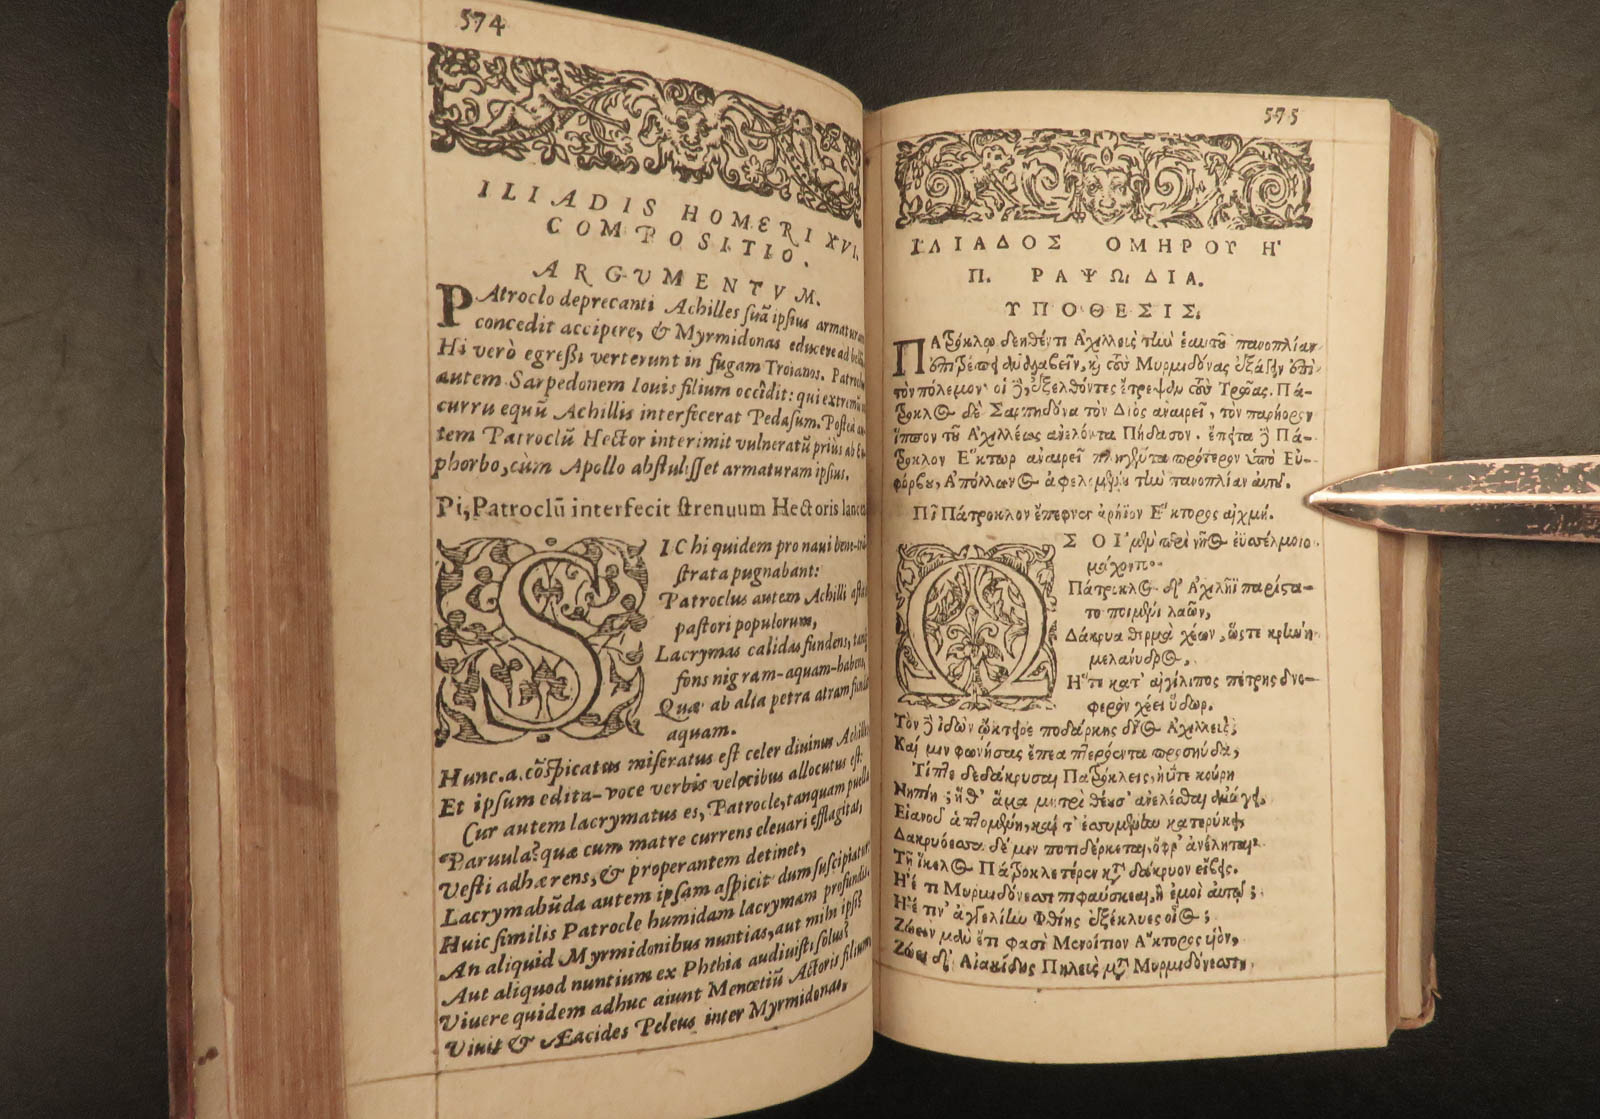 574
ILIADIS HOMERI XVI.
COMPOSITIO.
ARGVMENTVM.
PAtroclo deprecanti Achilles suã ipsius armaturam
concedit accipere, & Myrmidonas educere ad
Hi verò egreßi verterunt in fugam Troianos.
autem Sarpedonem Iouis filium occîdit: qui
curru equũ Achillis interfecerat Pedasum. Posteà
tem Patroclũ Hector interimit vulneratũ priùs ab
phorbo, cùm Apollo abstulisset armaturam ipsius.
Pi, Patroclũ interfecit strenuum Hectoris
SIC hi quidem pro naui
strata pugnabant:
Patroclus autem Achilli
pastori populorum,
Lacrymas calidas fundens,
fons nigram-aquam-habens,
Quæ ab alta petra atram
aquam.
Hunc. a. cõspicatus miseratus est celer diuinus
Et ipsum edita-voce verbis velocibus allocutus est:
Cur autem lacrymatus es, Patrocle, tanquam puella
Paruula? quæ cum matre currens eleuari efflagitat,
Vesti adhærens, & properantem detinet,
Lacrymabũda autem ipsam aspicit dum suscipiatur:
Huic similis Patrocle humidam lacrymam profundis.
An aliquid Myrmidonibus nuntias, aut mihi ipsi?
Aut aliquod nuntium ex Phthia audiuisti solus?
Viuere quidem adhuc aiunt Menœtiũ Actoris filium,
Viuit & Æacides Peleus inter Myrmidonas,
575
ΙΛΙΑΔΟΣ ΟΜΗΡΟΥ Η
Π. ΡΑΨΩΔΙΑ.
ΥΠΟΘΕΣΙΣ.
ΠΑτρόκλῳ δεηθέντι Ἀχιλλεὺς τὴν ἑαυτοῦ πανοπλίαν
ἐπιτρέπει ἀναλαβεῖν, καὶ τοὺς Μυρμιδόνας ἐξάγειν ἐπὶ
τὸν πόλεμον· οἱ δὲ, ἐξελθόντες ἔτρεψαν τοὺς Τρῶας. Πά-
τροκλος δὲ Σαρπηδόνα τὸν Διὸς ἀναιρεῖ, τὸν παρήορον
ἵππον τοῦ Ἀχιλλέως ἀνελόντα Πήδασον. ἔπειτα δὲ Πά-
τροκλον Ἕκτωρ ἀναιρεῖ πληγέντα πρότερον ὑπὸ Εὐ-
φόρβου, Ἀπόλλωνος ἀφελομένου τὴν πανοπλίαν αὐτοῦ.
Πῖ Πάτροκλον ἔπεφνεν ἀρήϊον Ἕκτορος αἰχμή.
ΩΣ ΟΙ μὲν περὶ νηὸς ἐϋσσέλμοιο
μάχοντο·
Πάτροκλος δ' Ἀχιλῆϊ παρίστα-
το ποιμένι λαῶν,
Δάκρυα θερμὰ χέων, ὥστε κρήνη
μελάνυδρος,
Ἥτε κατ' αἰγίλιπος πέτρης δνο-
φερὸν χέει ὕδωρ.
Τὸν δὲ ἰδὼν ᾤκτειρε ποδάρκης δῖος Ἀχιλλεύς,
Καί μιν φωνήσας ἔπεα πτερόεντα προσηύδα,
Τίπτε δεδάκρυσαι Πατρόκλεις, ἠΰτε κούρη
Νηπίη; ἥθ' ἅμα μητρὶ θέουσ' ἀνελέσθαι ἀνώγει,
Εἱανοῦ ἁπτομένη, καί τ' ἐσσυμένην κατερύκει,
Δακρυόεσσα δέ μιν ποτιδέρκεται, ὄφρ' ἀνέληται·
Τῇ ἴκελος Πάτροκλε τέρεν κατὰ δάκρυον εἴβεις.
Ἠέ τι Μυρμιδόνεσσι πιφαύσκεαι, ἢ ἐμοὶ αὐτῷ;
Ἠέ τιν' ἀγγελίην Φθίης ἐξέκλυες οἶος;
Ζώειν μὲν ἔτι φασὶ Μενοίτιον Ἄκτορος υἱὸν,
Ζώει δ' Αἰακίδης Πηλεὺς μετὰ Μυρμιδόνεσσιν,